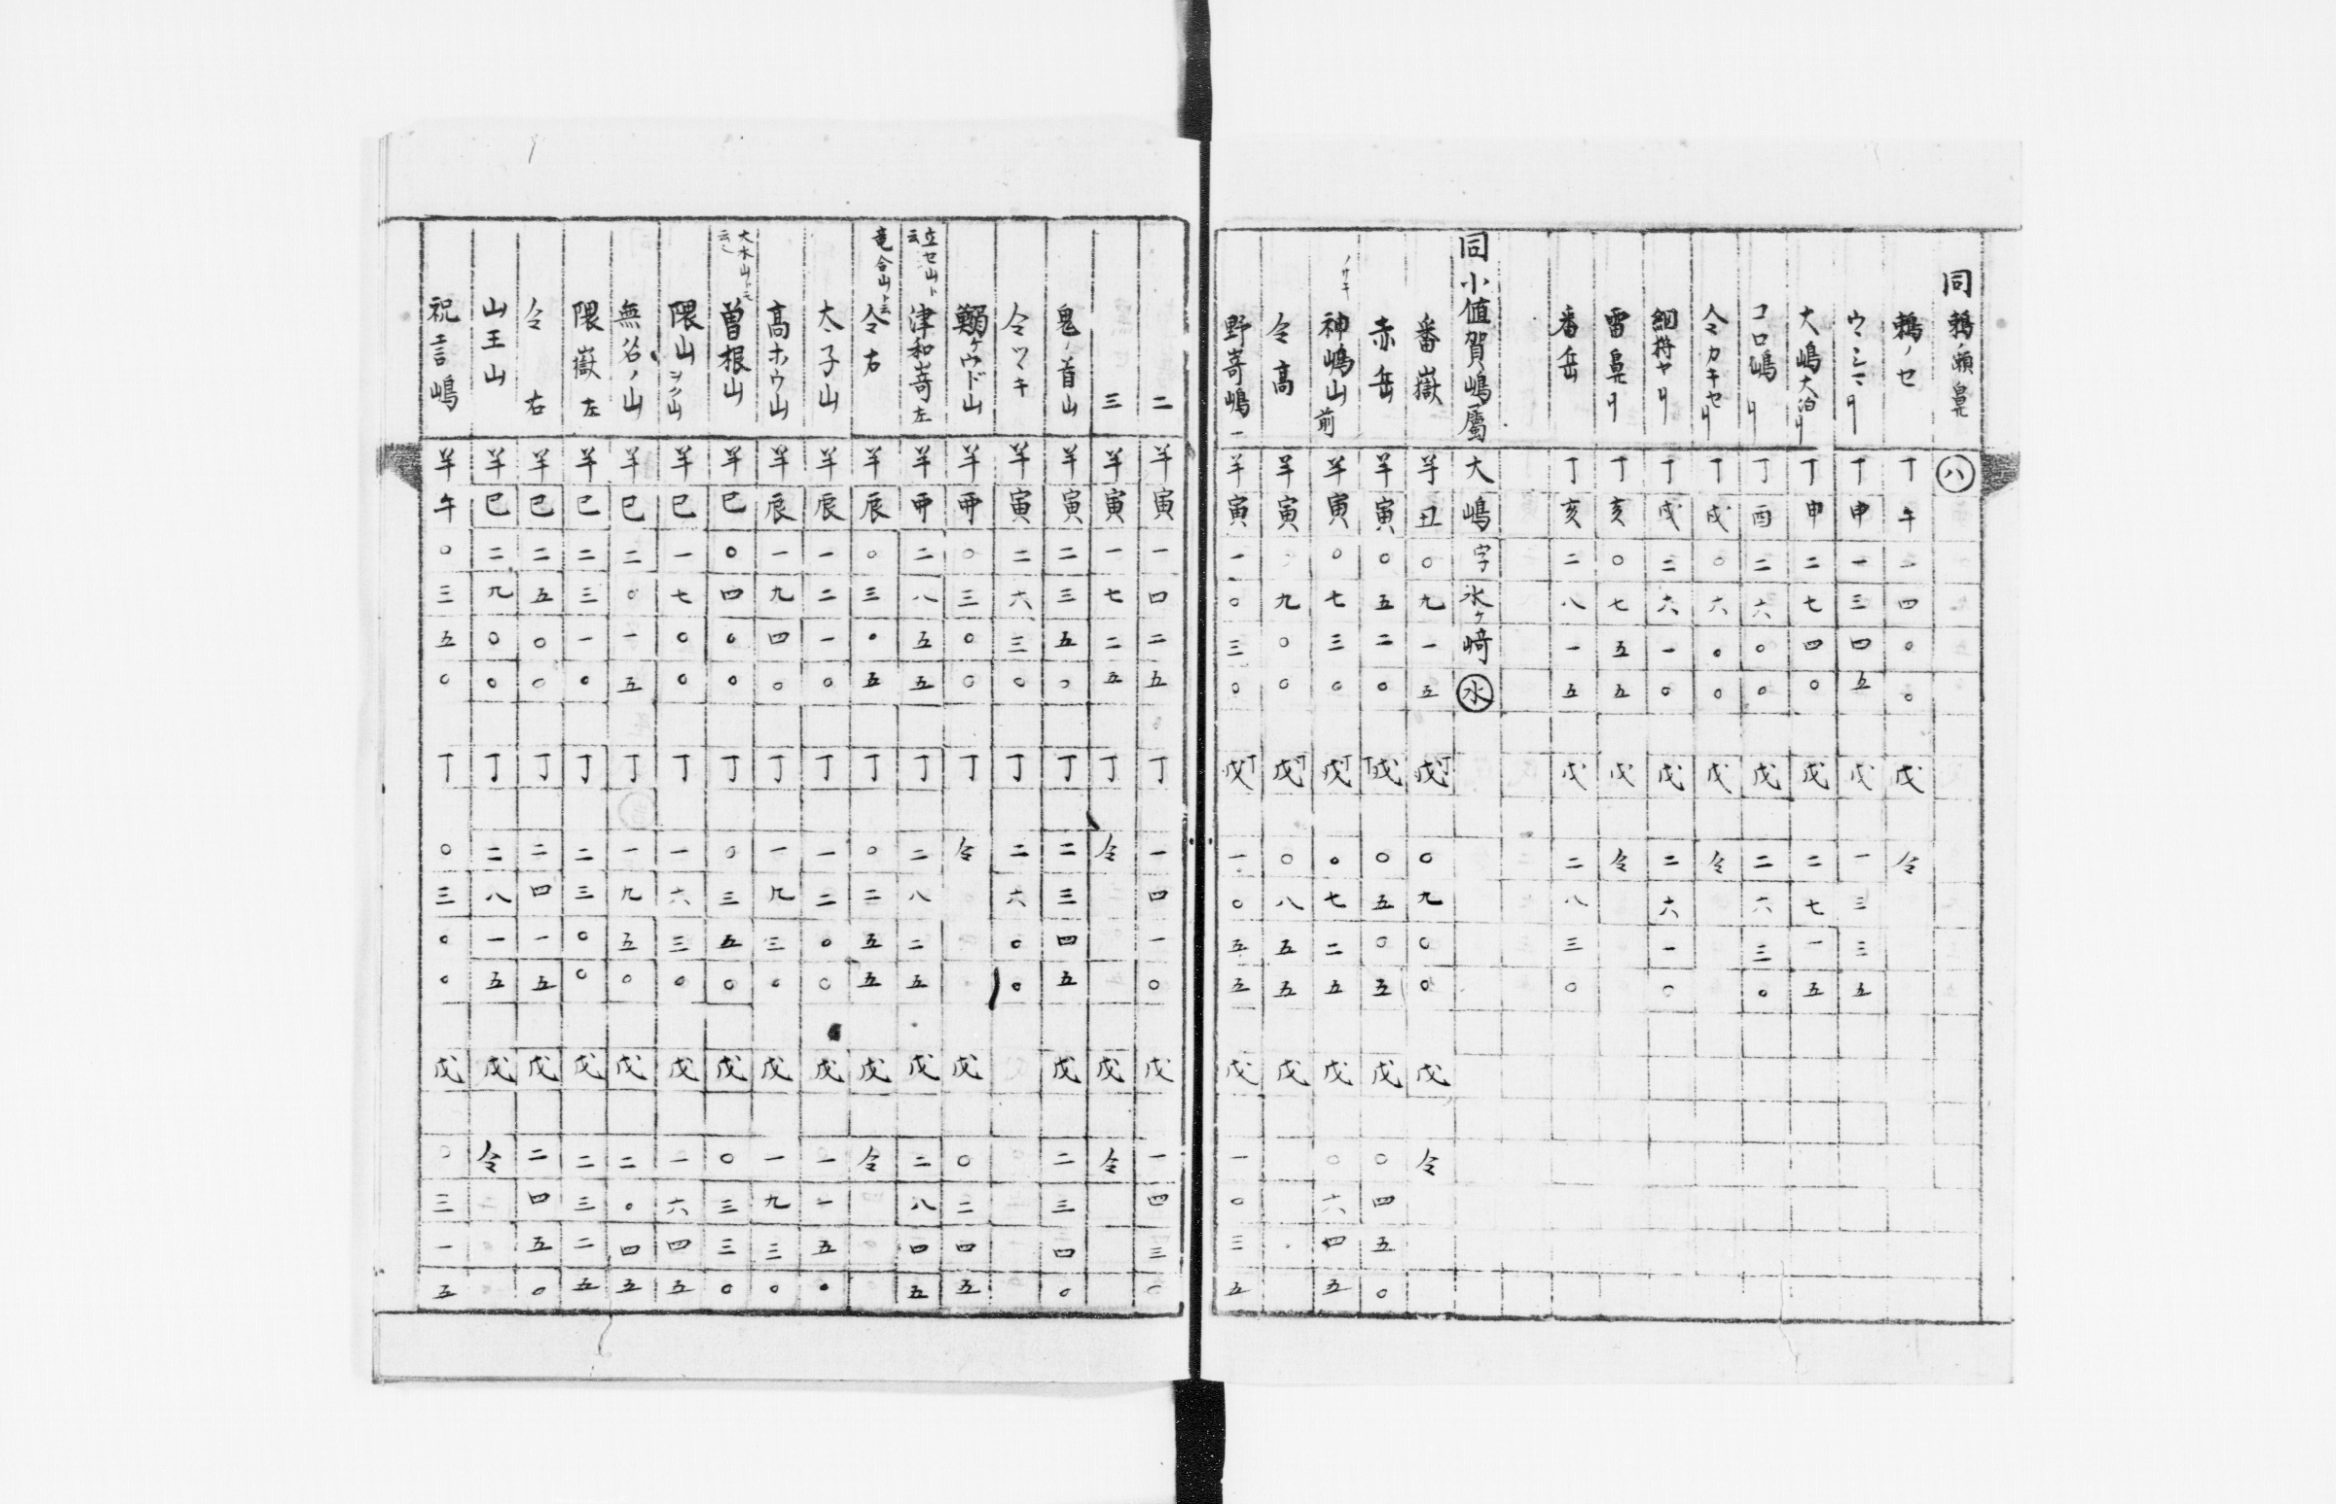 同鵜ノ瀬鼻 八
鵜ノセ 丁午二四〇〇 戊 仝
ウシニリ 丁申一三四五 戊 一三三五
大嶋大泊リ 丁申二七四〇 戊 二七一五
コロ嶋リ 丁酉二六〇〇 戊 二六三〇
仝カキセリ 丁戌〇六〇〇 戊 仝
丁戌二六一〇 戊 二六一〇
雷鼻リ 丁亥〇七五五 戊 仝
番岳 丁亥二八一五 戊 二八三〇
同小値賀嶋属大嶋字氷ケ崎 水
番嶽 羊丑〇九一五 戊丁 〇九〇〇 戊 仝
赤岳 羊寅〇五二〇 戊丁 〇五〇五 戊 〇四五〇
神嶋山前 ノサキ 羊寅〇七三〇 戊丁 〇七二五 戊 〇六四五
仝高 羊寅〇九〇〇 戊丁 〇八五五 戊
野嵜嶋一 羊寅一〇三〇 戊丁 一〇五五 戊 一〇三五
二 羊寅一四二五 丁 一四一〇 戊 一四三〇
三 羊寅一七二五 丁 仝 戊 仝
鬼ノ首山 羊寅二三五〇 丁 二三四五 戊 二三四〇
仝ツヽキ 羊寅二六三〇 丁 二六〇〇
ケウド山 羊卯〇三〇〇 丁 仝 戊 〇二四五
立セ山ト云 津和嵜左 羊卯二八五五 丁 二八二五 戊 二八四五
竜合山ト云 仝右 羊辰〇三〇五 丁 〇二五五 戊 仝
大子山 羊辰一二一〇 丁 一二〇〇 戊 一一五〇
高ホウ山 羊辰一九四〇 丁 一九三〇 戊 一九三〇
大水山トモ云 曽根山 羊巳〇四〇〇 丁 〇三五〇 戊 〇三三〇
隈山 羊巳一七〇〇 丁 一六三〇 戊 一六四五
無谷ノ山 羊巳二〇一五 丁 一九五〇 戊 二〇四五
隈嶽左 羊巳二三一〇 丁 二三〇〇 戊 二三二五
仝右 羊巳二五〇〇 丁 二四一五 戊 二四五〇
山王山 羊巳二九〇〇 丁 二八一五 戊 仝
祝言嶋 羊午〇三五〇 丁 〇三〇〇 戊 〇三一五